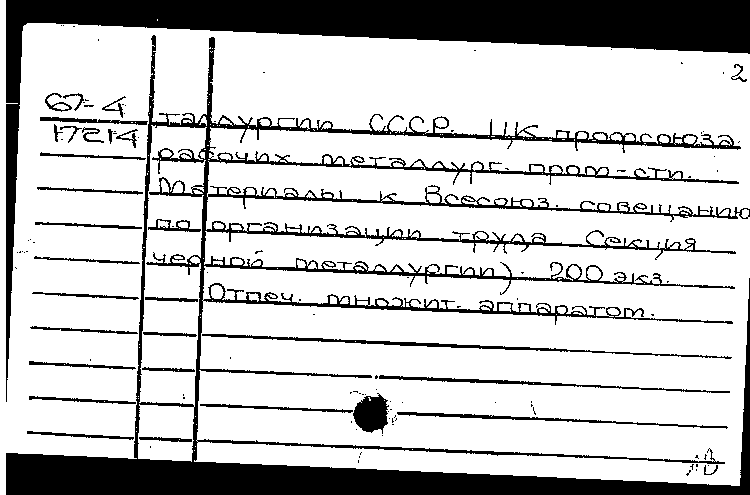 2
67-4
17214
таллургии СССР. ЦК профсоюза
рабочих металлург. пром-сти.
Материалы к Всесоюз. совещанию
по организации труда Секция
черной металлургии). 200 экз.
Отпеч. множит. аппаратом.